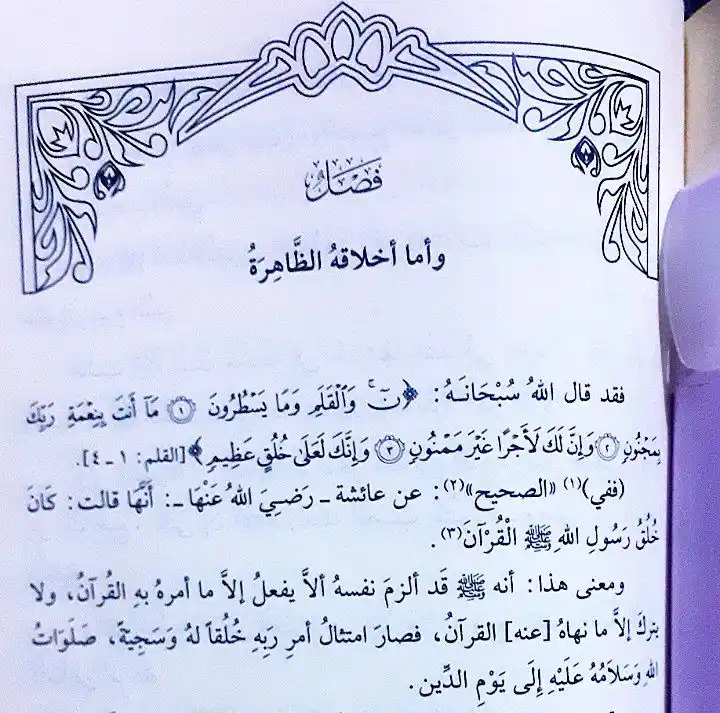 فَصْلٌ
وأما أخلاقهُ الظَّاهِرَةُ
فقد قال اللهُ سُبْحَانَهُ: ﴿نٓ ۚ وَٱلْقَلَمِ وَمَا يَسْطُرُونَ ۝١ مَآ أَنتَ بِنِعْمَةِ رَبِّكَ
بِمَجْنُونٍ ۝٢ وَإِنَّ لَكَ لَأَجْرًا غَيْرَ مَمْنُونٍ ۝٣ وَإِنَّكَ لَعَلَىٰ خُلُقٍ عَظِيمٍ﴾ [القلم: ١ـ٤].
(ففي)(١) «الصحيح»(٢): عن عائشة ـ رَضِيَ اللهُ عَنْهَا ـ: أَنَّهَا قالت: كَانَ
خُلُقُ رَسُولِ اللهِ ﷺ الْقُرْآنَ(٣).
ومعنى هذا: أنه ﷺ قَد ألزمَ نفسهُ ألاَّ يفعلُ إلاَّ ما أمرهُ بهِ القُرآنُ، ولا
يتركَ إلاَّ ما نهاهُ [عنه] القرآنُ، فصارَ امتثالُ أمرِ رَبِهِ خُلُقاً لهُ وَسَجِيَّةً، صَلَوَاتُ
اللهِ وَسَلاَمُهُ عَلَيْهِ إِلَى يَوْمِ الدِّين.